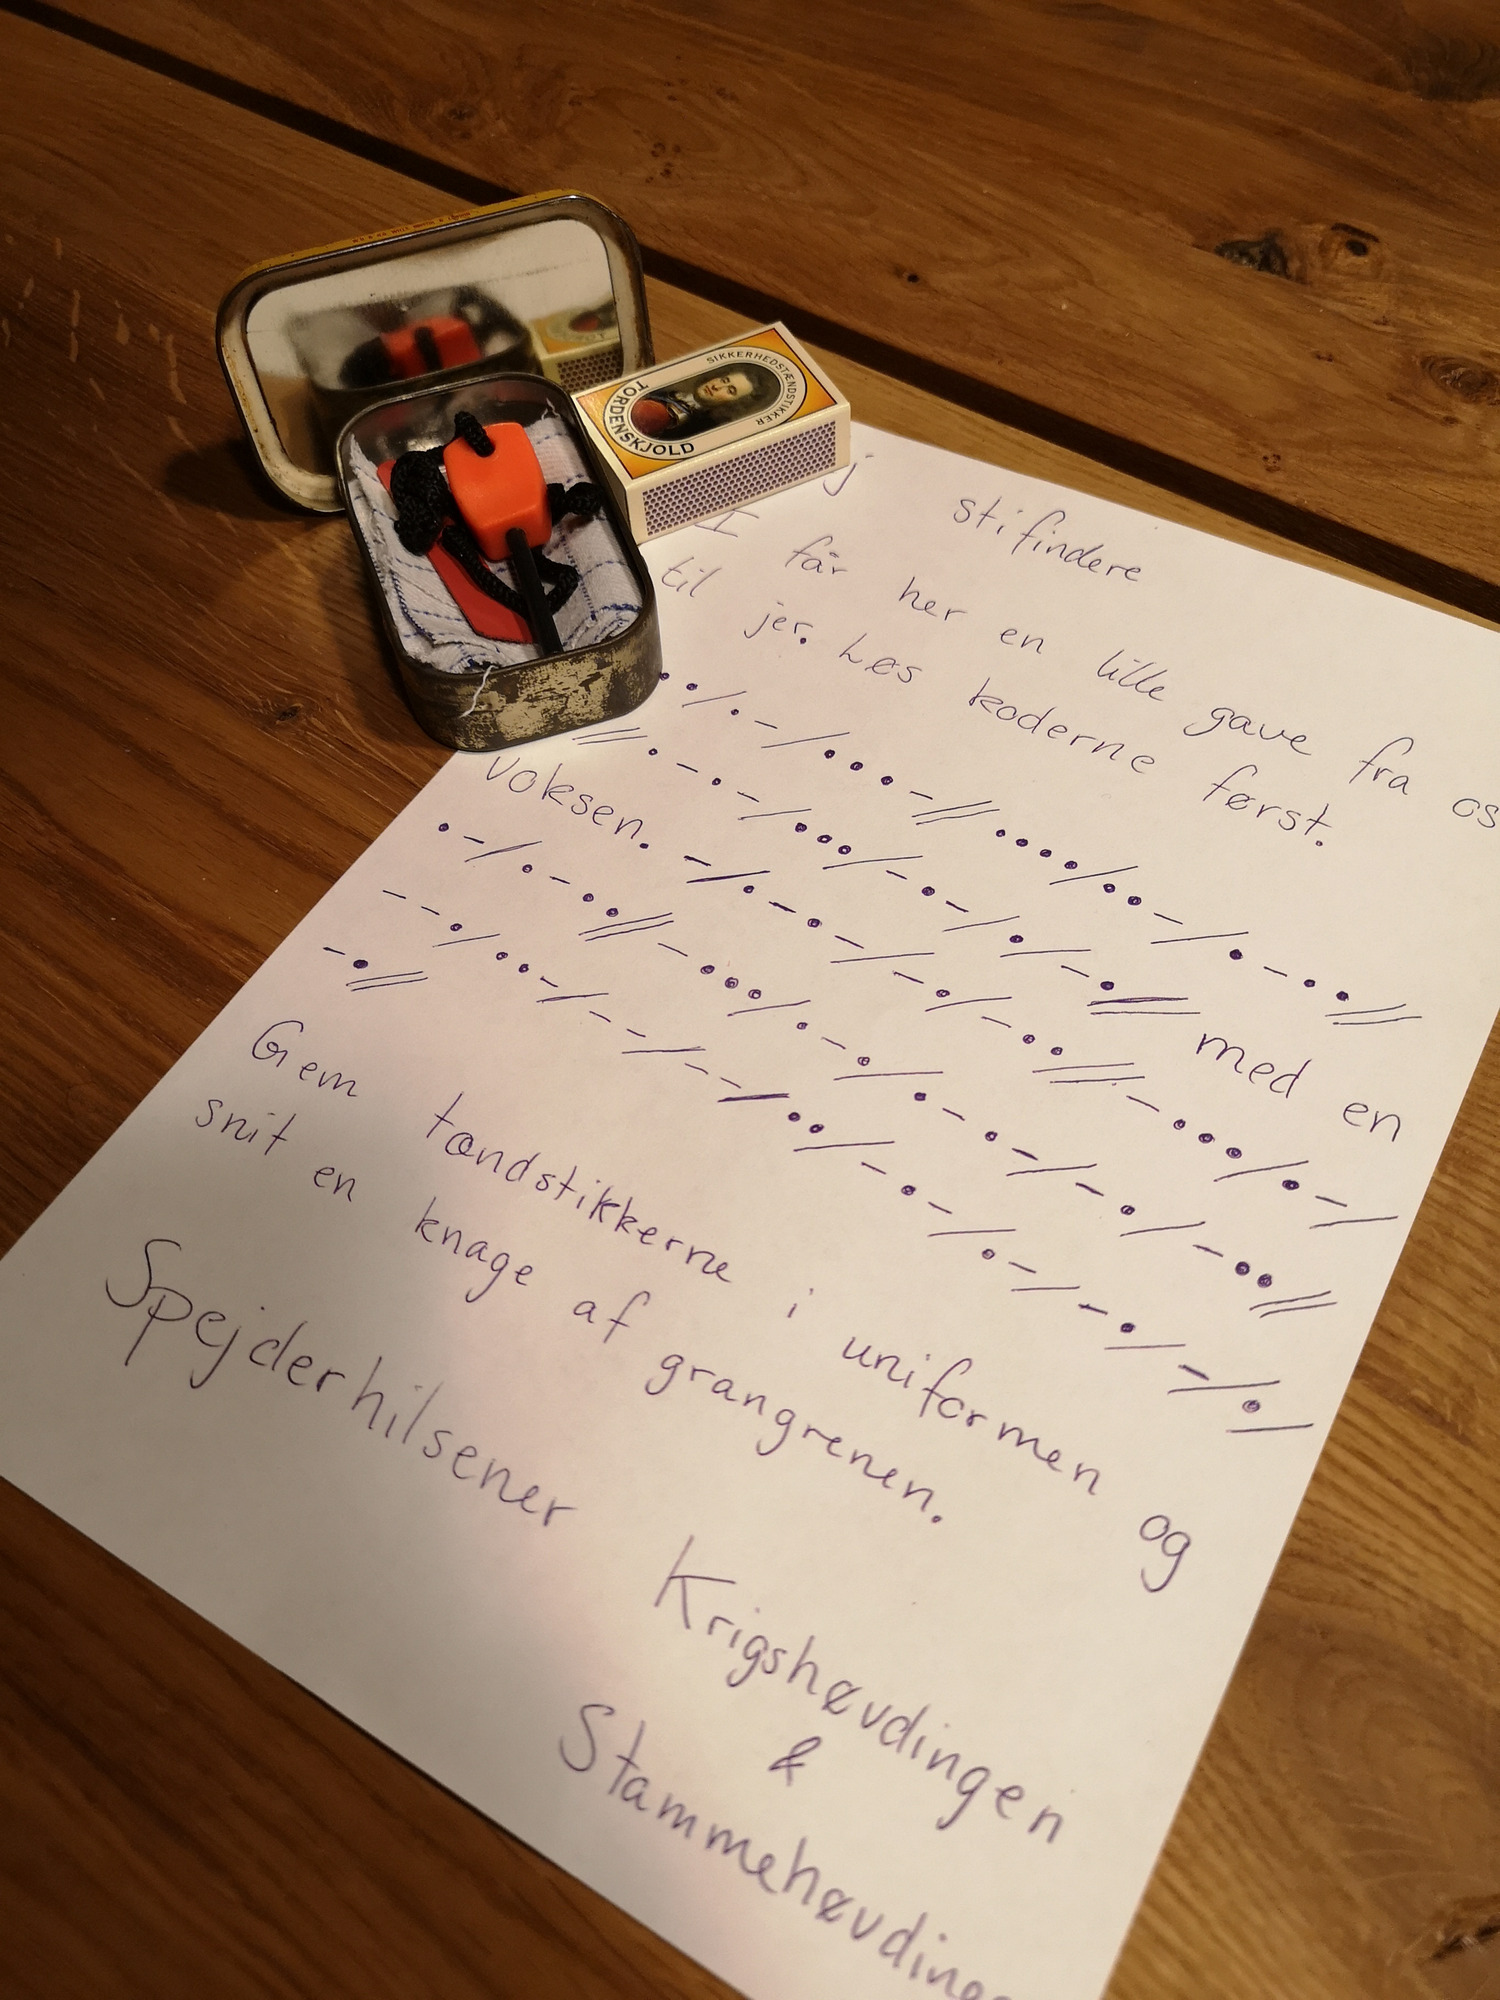 SIKKERHEDSTÆNDSTIKKER
TORDENSKJOLD
stifindere
I får her en lille gave fra os
til jer. Løs koderne først.
• • / • – / • • • – // • • • • / • • – / • – • • //
// • – • – / • • • / – • – / • / – • // med en
voksen. – / • – • – / – • / – • • // – • • • / • – /
• – / • – • • // – • • • / • – • / • – • – / – • / – • • //
– – • / • • – / – – / – – – • • / – • – / • – / – • / – / • /
– • //
Gem tændstikkerne i uniformen og
snit en knage af grangrenen.
Spejderhilsener
Krigshøvdingen
&